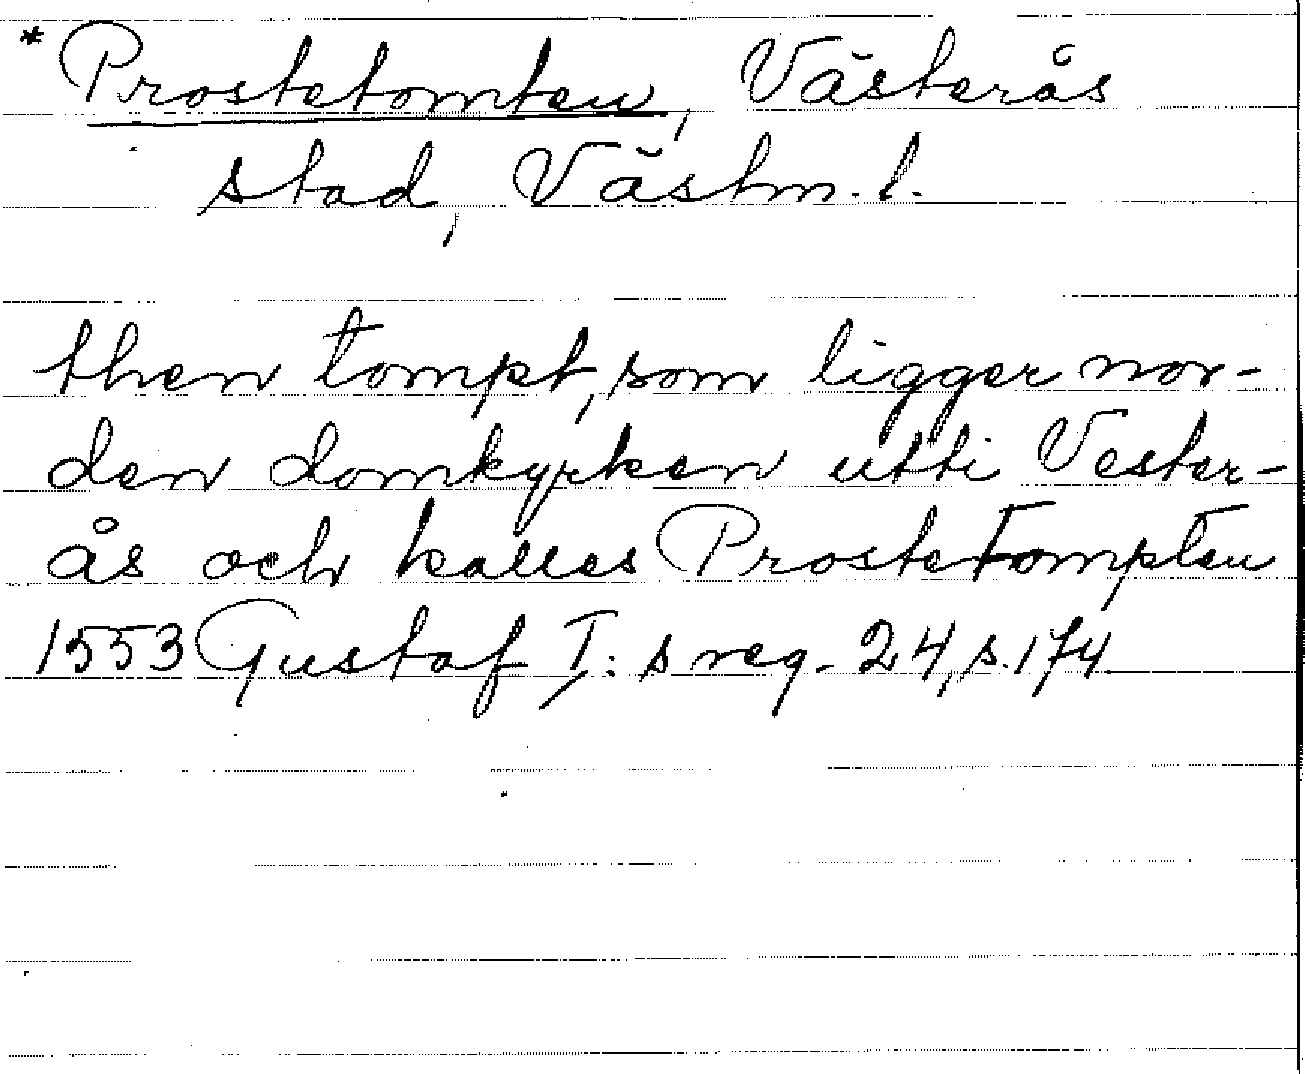 * Prostetomten, Västerås
stad, Västm. l.
then tompt, som ligger nor-
den domkyrken utti Vester-
ås och kalles Prostetompten
1553 Gustaf I:s reg. 24, s. 174